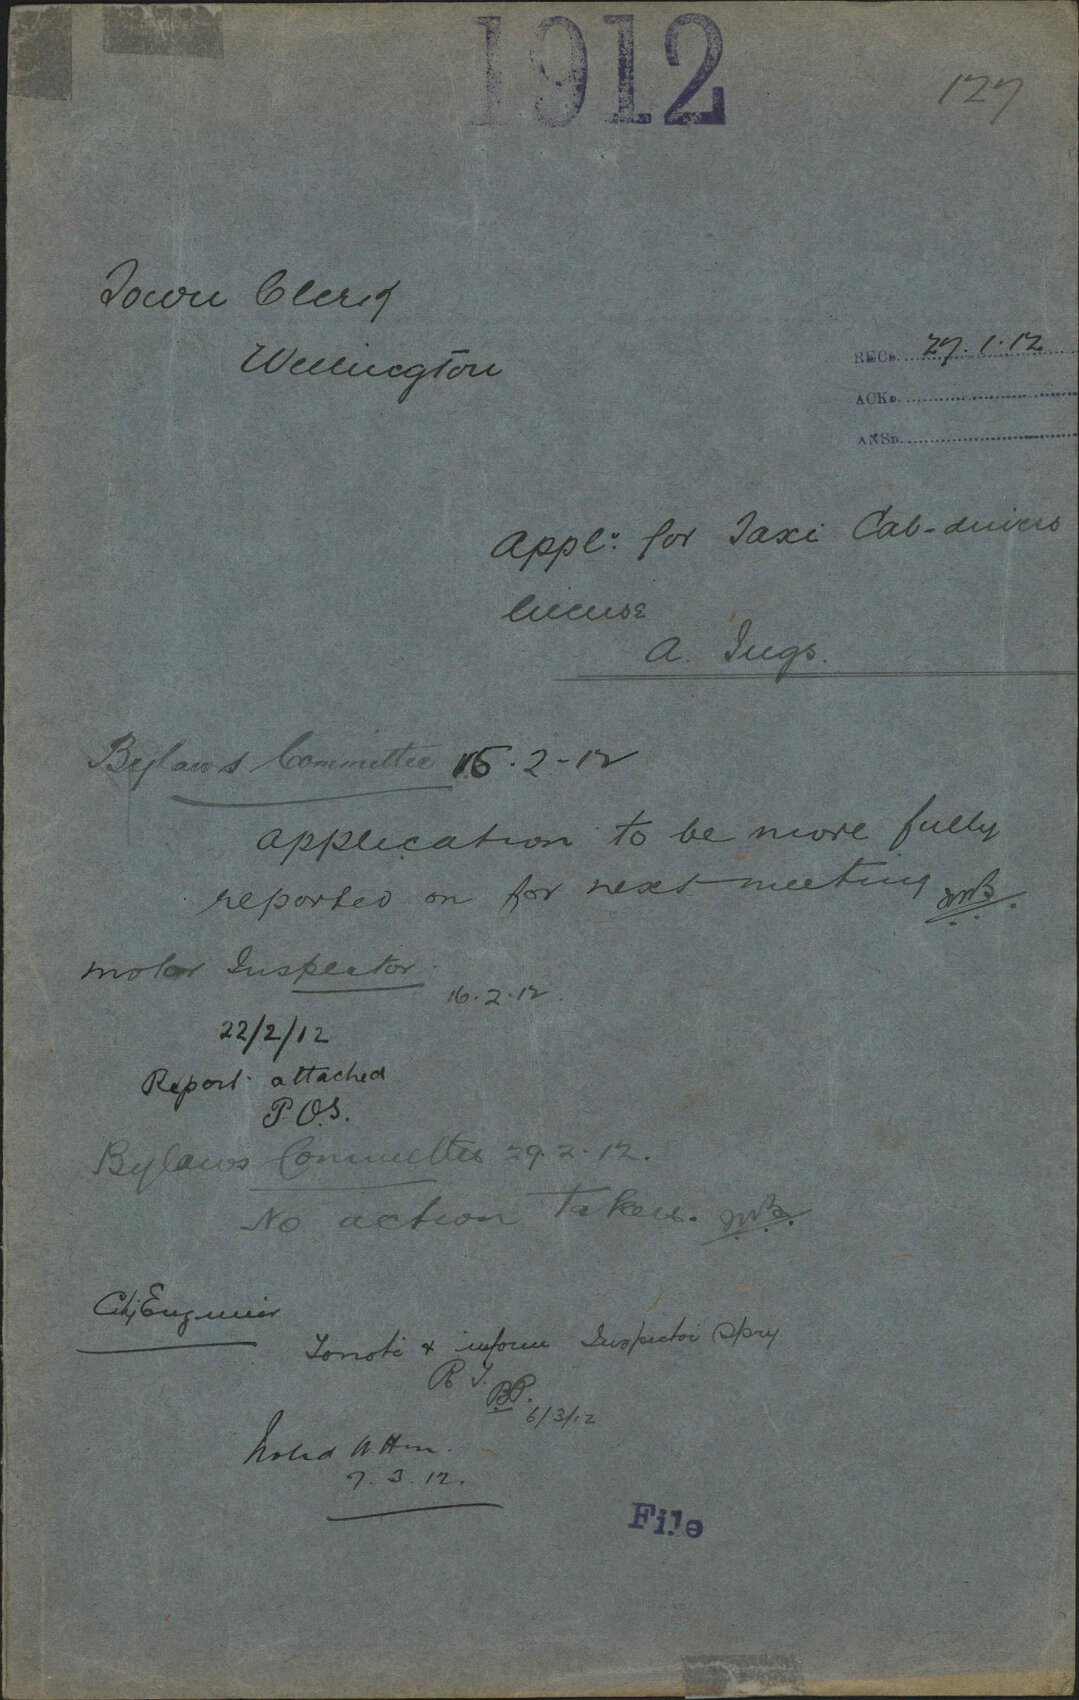 1912
127
Town Clerk
Wellington
RECD. 27.1.12
ACKD.
ANSD.
Appl: for Taxi Cab-drivers
license
A.
Bylaws Committee 15.2-12
Application to be more fully
reported on for next meeting
Motor Inspector
16.2.12
22/2/12
Report attached
P.O.S.
Bylaws Committee 29.2.12.
No action taken.
City Engineer
To note & inform Inspector Spry
BP.
6/3/12
Noted
7.3.12.
File